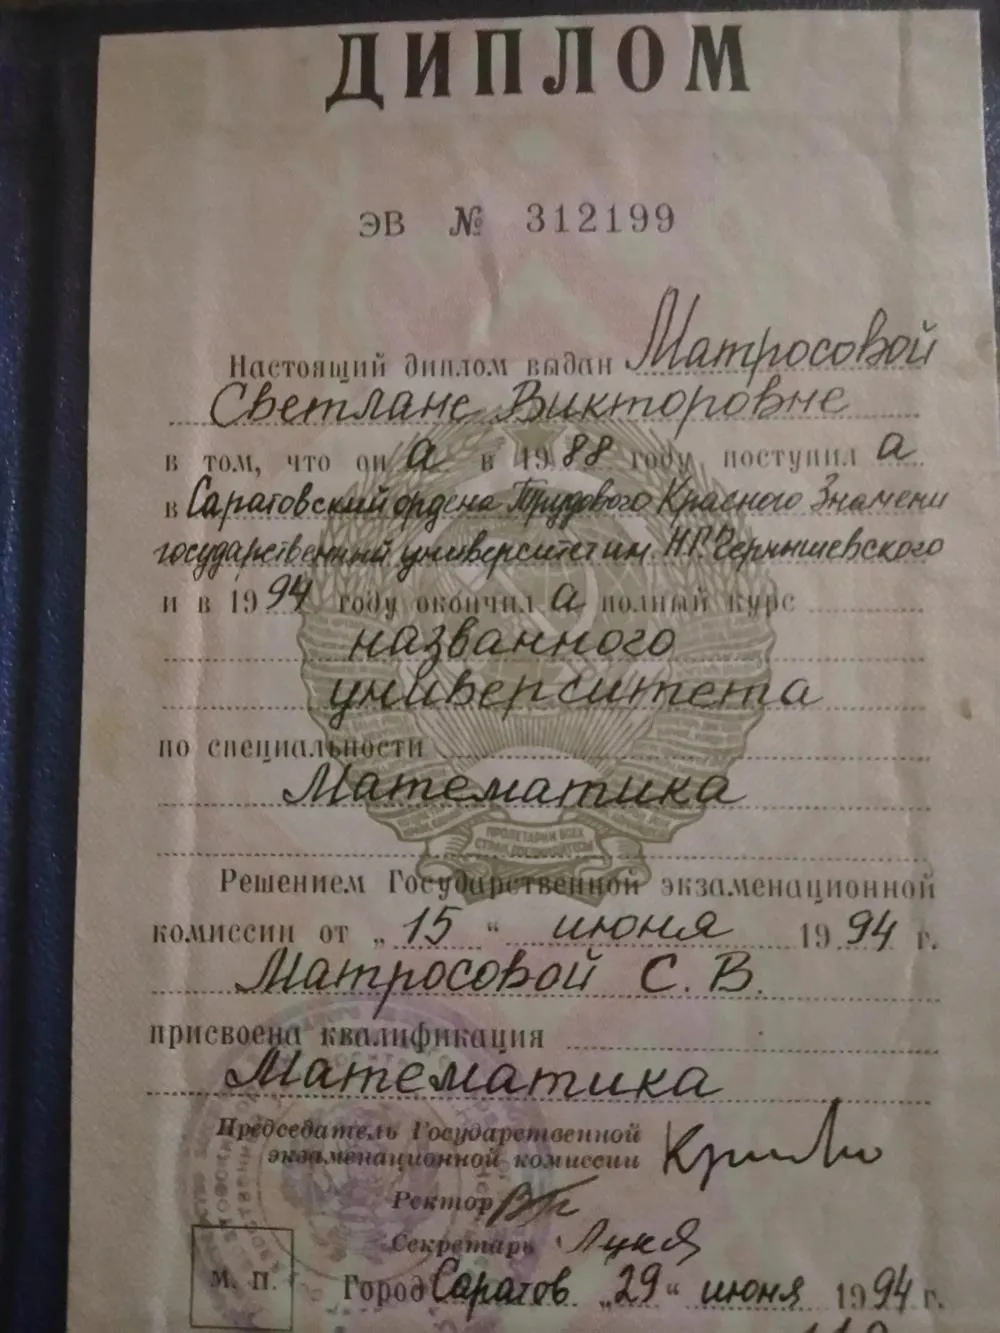 ДИПЛОМ
ЭВ № 312199
Настоящий диплом выдан Матросовой
Светлане Викторовне
в том, что он а в 1988 году поступил а
в Саратовский ордена Трудового Красного Знамени
государственный университет им Н.Г. Чернышевского
и в 1994 году окончил а полный курс
названного
университета
по специальности
Математика
ПРОЛЕТАРИИ ВСЕХ
СТРАН, СОЕДИНЯЙТЕСЬ
Решением Государственной экзаменационной
комиссии от „15“ июня 1994 г.
Матросовой С. В.
присвоена квалификация
Математика
Председатель Государственной
экзаменационной комиссии
Ректор
Секретарь
М. П. Город Саратов „29“ июня 1994 г.